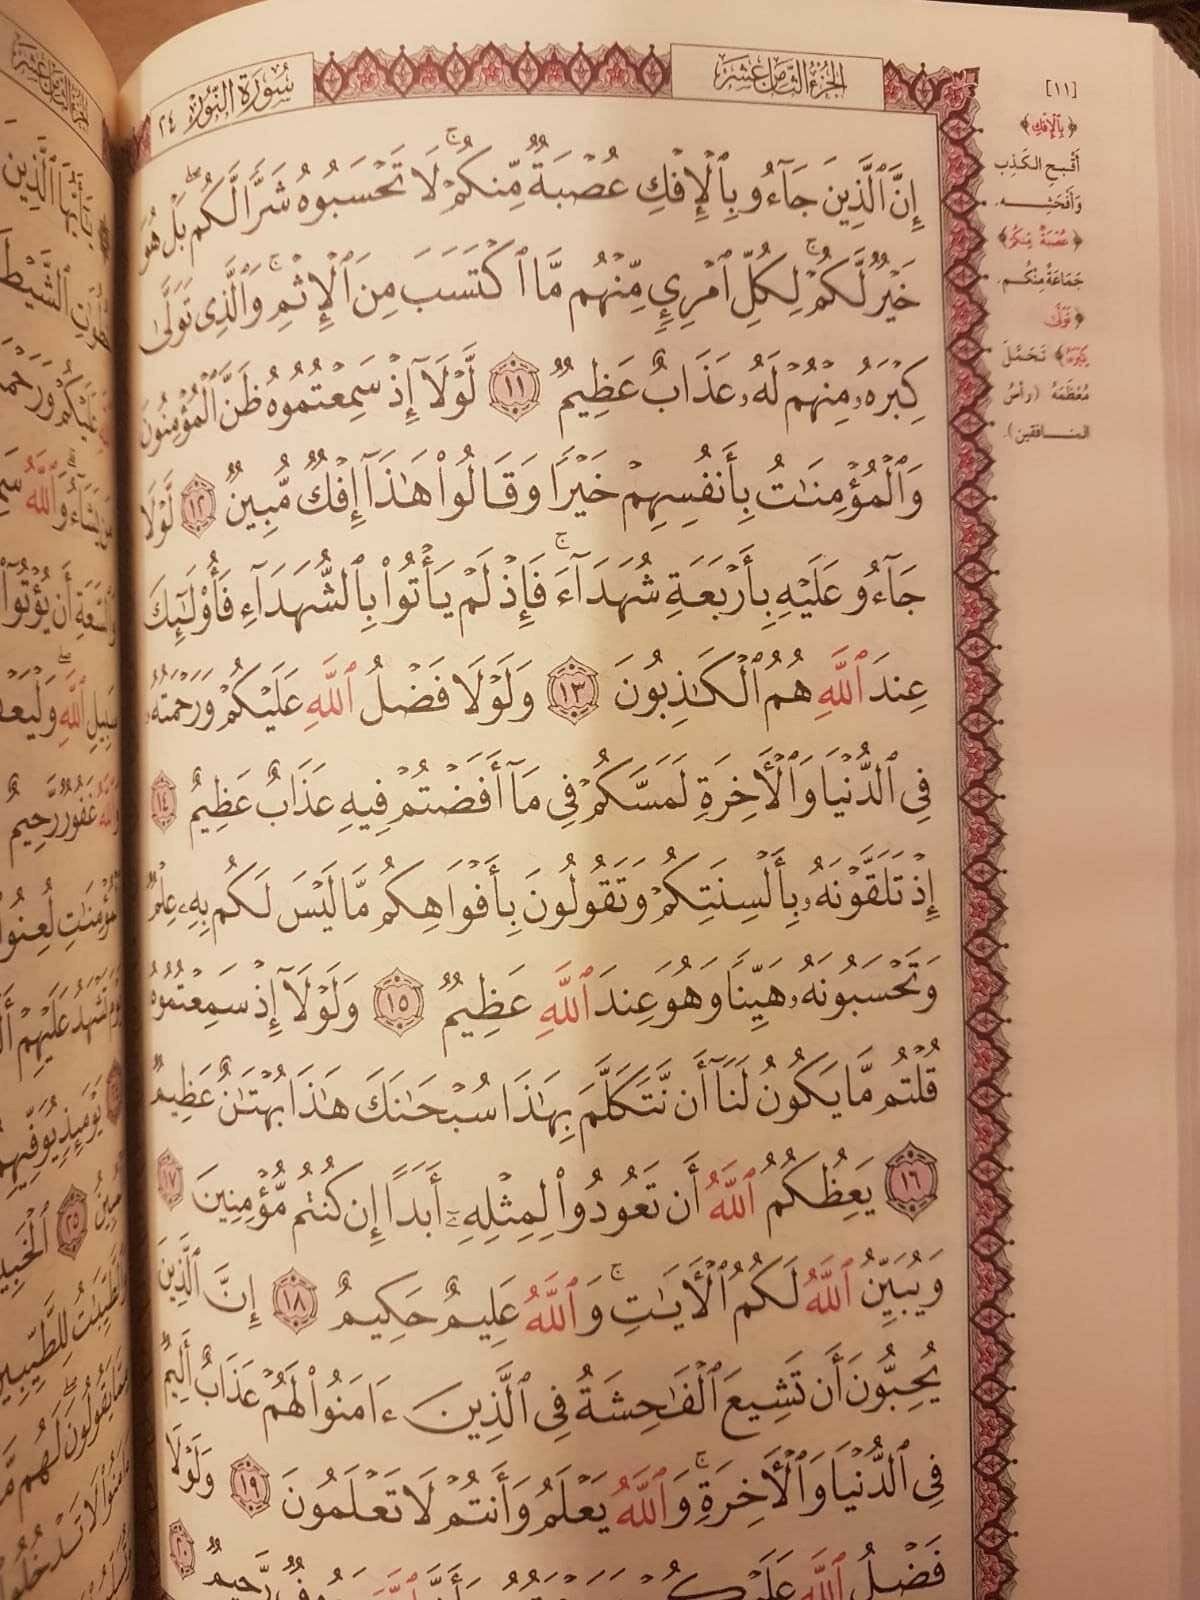 سورة النور ٢٤
الجزء الثامن عشر
إِنَّ ٱلَّذِينَ جَآءُو بِٱلْإِفْكِ عُصْبَةٌ مِّنكُمْ ۚ لَا تَحْسَبُوهُ شَرًّا لَّكُم ۖ بَلْ هُوَ
خَيْرٌ لَّكُمْ ۚ لِكُلِّ ٱمْرِئٍ مِّنْهُم مَّا ٱكْتَسَبَ مِنَ ٱلْإِثْمِ ۚ وَٱلَّذِى تَوَلَّىٰ
كِبْرَهُۥ مِنْهُمْ لَهُۥ عَذَابٌ عَظِيمٌ ١١ لَّوْلَآ إِذْ سَمِعْتُمُوهُ ظَنَّ ٱلْمُؤْمِنُونَ
وَٱلْمُؤْمِنَٰتُ بِأَنفُسِهِمْ خَيْرًا وَقَالُوا۟ هَٰذَآ إِفْكٌ مُّبِينٌ ١٢ لَّوْلَا
جَآءُو عَلَيْهِ بِأَرْبَعَةِ شُهَدَآءَ ۚ فَإِذْ لَمْ يَأْتُوا۟ بِٱلشُّهَدَآءِ فَأُو۟لَٰٓئِكَ
عِندَ ٱللَّهِ هُمُ ٱلْكَٰذِبُونَ ١٣ وَلَوْلَا فَضْلُ ٱللَّهِ عَلَيْكُمْ وَرَحْمَتُهُۥ
فِى ٱلدُّنْيَا وَٱلْءَاخِرَةِ لَمَسَّكُمْ فِى مَآ أَفَضْتُمْ فِيهِ عَذَابٌ عَظِيمٌ ١٤
إِذْ تَلَقَّوْنَهُۥ بِأَلْسِنَتِكُمْ وَتَقُولُونَ بِأَفْوَاهِكُم مَّا لَيْسَ لَكُم بِهِۦ عِلْمٌ
وَتَحْسَبُونَهُۥ هَيِّنًا وَهُوَ عِندَ ٱللَّهِ عَظِيمٌ ١٥ وَلَوْلَآ إِذْ سَمِعْتُمُوهُ
قُلْتُم مَّا يَكُونُ لَنَآ أَن نَّتَكَلَّمَ بِهَٰذَا سُبْحَٰنَكَ هَٰذَا بُهْتَٰنٌ عَظِيمٌ
١٦ يَعِظُكُمُ ٱللَّهُ أَن تَعُودُوا۟ لِمِثْلِهِۦٓ أَبَدًا إِن كُنتُم مُّؤْمِنِينَ ١٧
وَيُبَيِّنُ ٱللَّهُ لَكُمُ ٱلْءَايَٰتِ ۚ وَٱللَّهُ عَلِيمٌ حَكِيمٌ ١٨ إِنَّ ٱلَّذِينَ
يُحِبُّونَ أَن تَشِيعَ ٱلْفَٰحِشَةُ فِى ٱلَّذِينَ ءَامَنُوا۟ لَهُمْ عَذَابٌ أَلِيمٌ
فِى ٱلدُّنْيَا وَٱلْءَاخِرَةِ ۚ وَٱللَّهُ يَعْلَمُ وَأَنتُمْ لَا تَعْلَمُونَ ١٩ وَلَوْلَا
فَضْلُ ٱللَّهِ عَلَيْكُمْ رَّحِيمٌ ٢٠
[١١]
﴿بِٱلْإِفْكِ﴾
أَقْبَحِ الكَذِبِ
وَأَفْحَشِهِ.
﴿عُصْبَةٌ مِّنكُمْ﴾
جَمَاعَةٌ مِنْكُم.
﴿تَوَلَّىٰ
كِبْرَهُۥ﴾ تَحَمَّلَ
مُعْظَمَهُ (رأسُ
المنافقين).